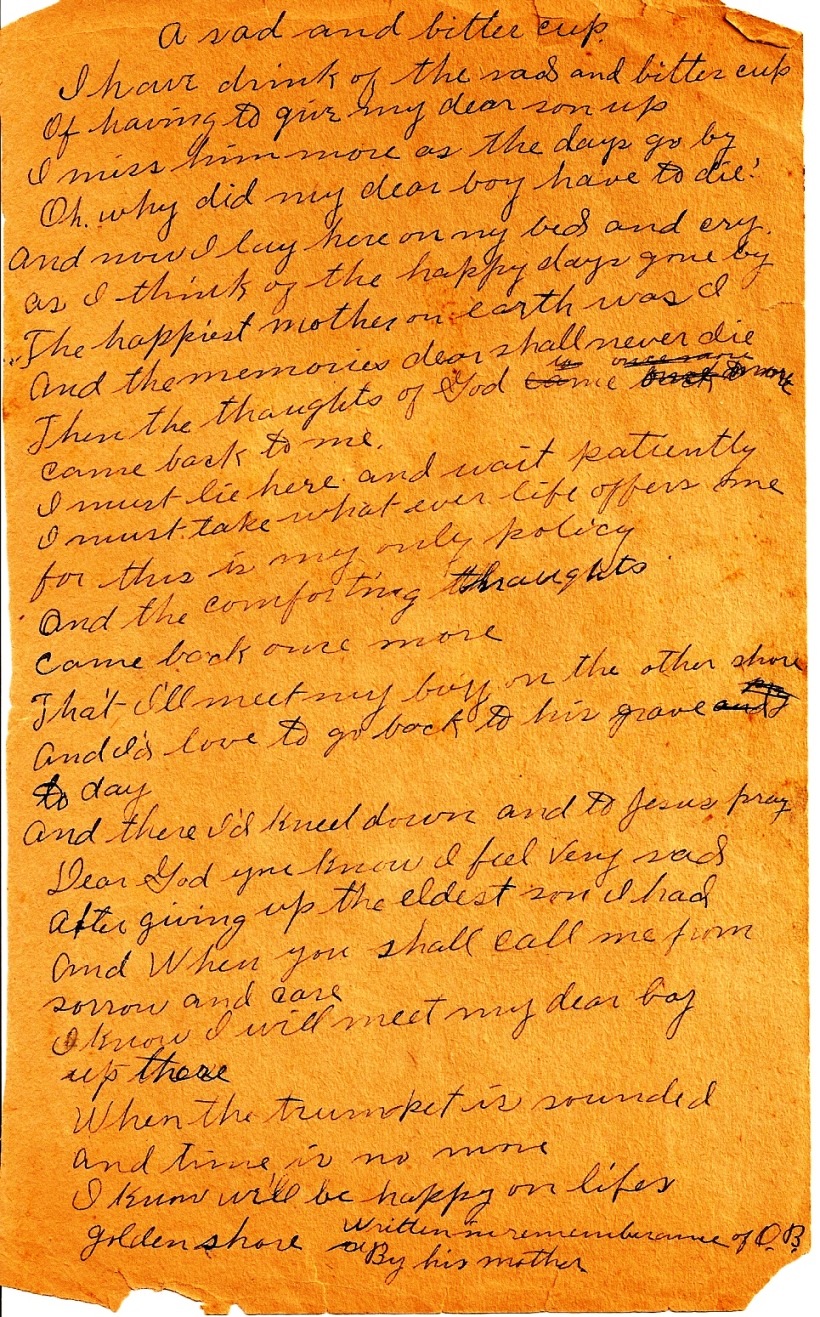 A sad and bitter cup
I have drink of the sad and bitter cup
Of having to give my dear son up
I miss him more as the days go by
Oh. why did my dear boy have to die!
And now I lay here on my bed and cry.
as I think of the happy days gone by
The happiest mother on earth was I
And the memories dear shall never die
Then the thoughts of God came back to more
came back to me.
I must lie here and wait patiently
I must take what ever life offers me
for this is my only policy
And the comforting thraughts
came back onre more
That I'll meet my boy on the other shore
And I'd love to go back to his grave and
to day
And there I'd kneel down and to Jesus pray
Dear God you know I feel very sad
After giving up the eldest son I had
And When you shall call me from
sorrow and care
I know I will meet my dear boy
up there
When the trumpet is sounded
and time is no more
I know we'll be happy on lifes
golden shore
Written in rememberance of O.B.
By his mother